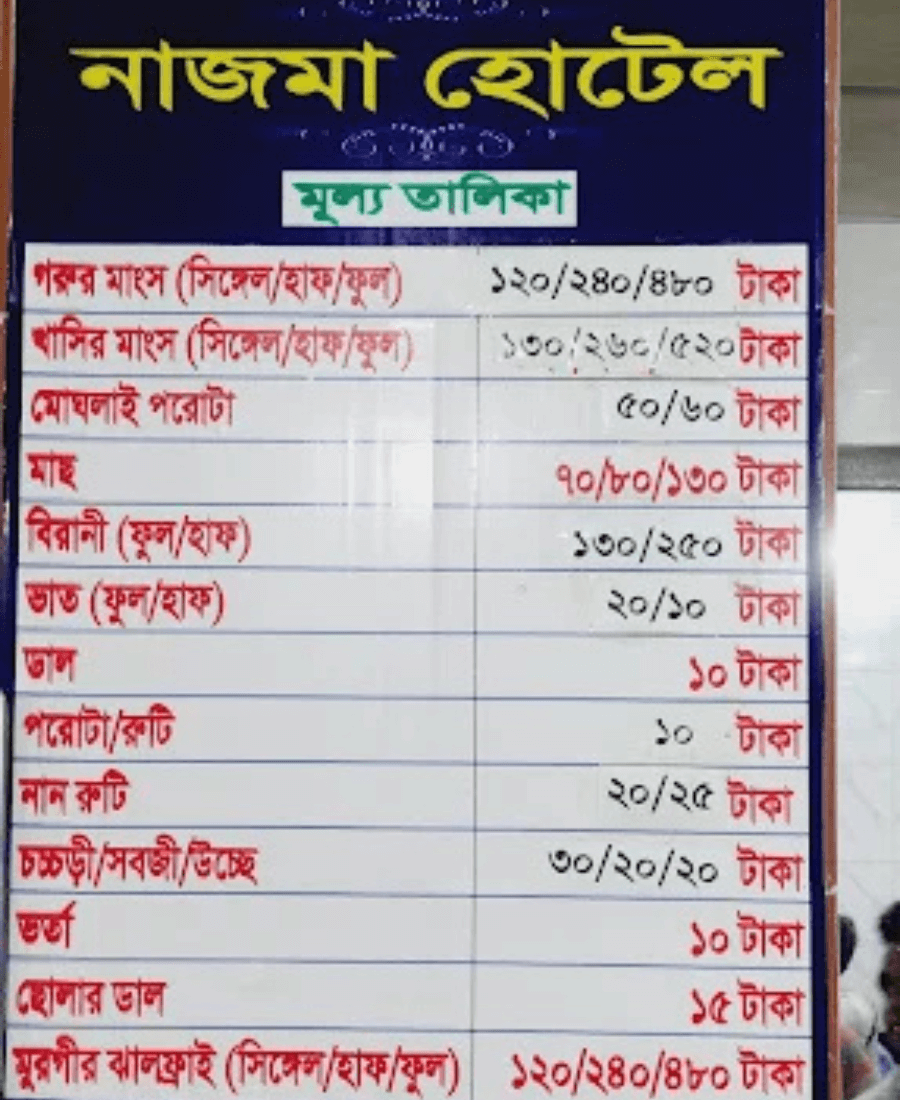 নাজমা হোটেল
মূল্য তালিকা
গরুর মাংস (সিঙ্গেল/হাফ/ফুল) ১২০/২৪০/৪৮০ টাকা
খাসির মাংস (সিঙ্গেল/হাফ/ফুল) ১৩০/২৬০/৫২০ টাকা
মোঘলাই পরোটা ৫০/৬০ টাকা
মাছ ৭০/৮০/১৩০ টাকা
বিরানী (ফুল/হাফ) ১৩০/২৫০ টাকা
ভাত (ফুল/হাফ) ২০/১০ টাকা
ডাল ১০ টাকা
পরোটা/রুটি ১০ টাকা
নান রুটি ২০/২৫ টাকা
চচ্চড়ী/সবজী/উচ্ছে ৩০/২০/২০ টাকা
ভর্তা ১০ টাকা
ছোলার ডাল ১৫ টাকা
মুরগীর ঝালফ্রাই (সিঙ্গেল/হাফ/ফুল) ১২০/২৪০/৪৮০ টাকা